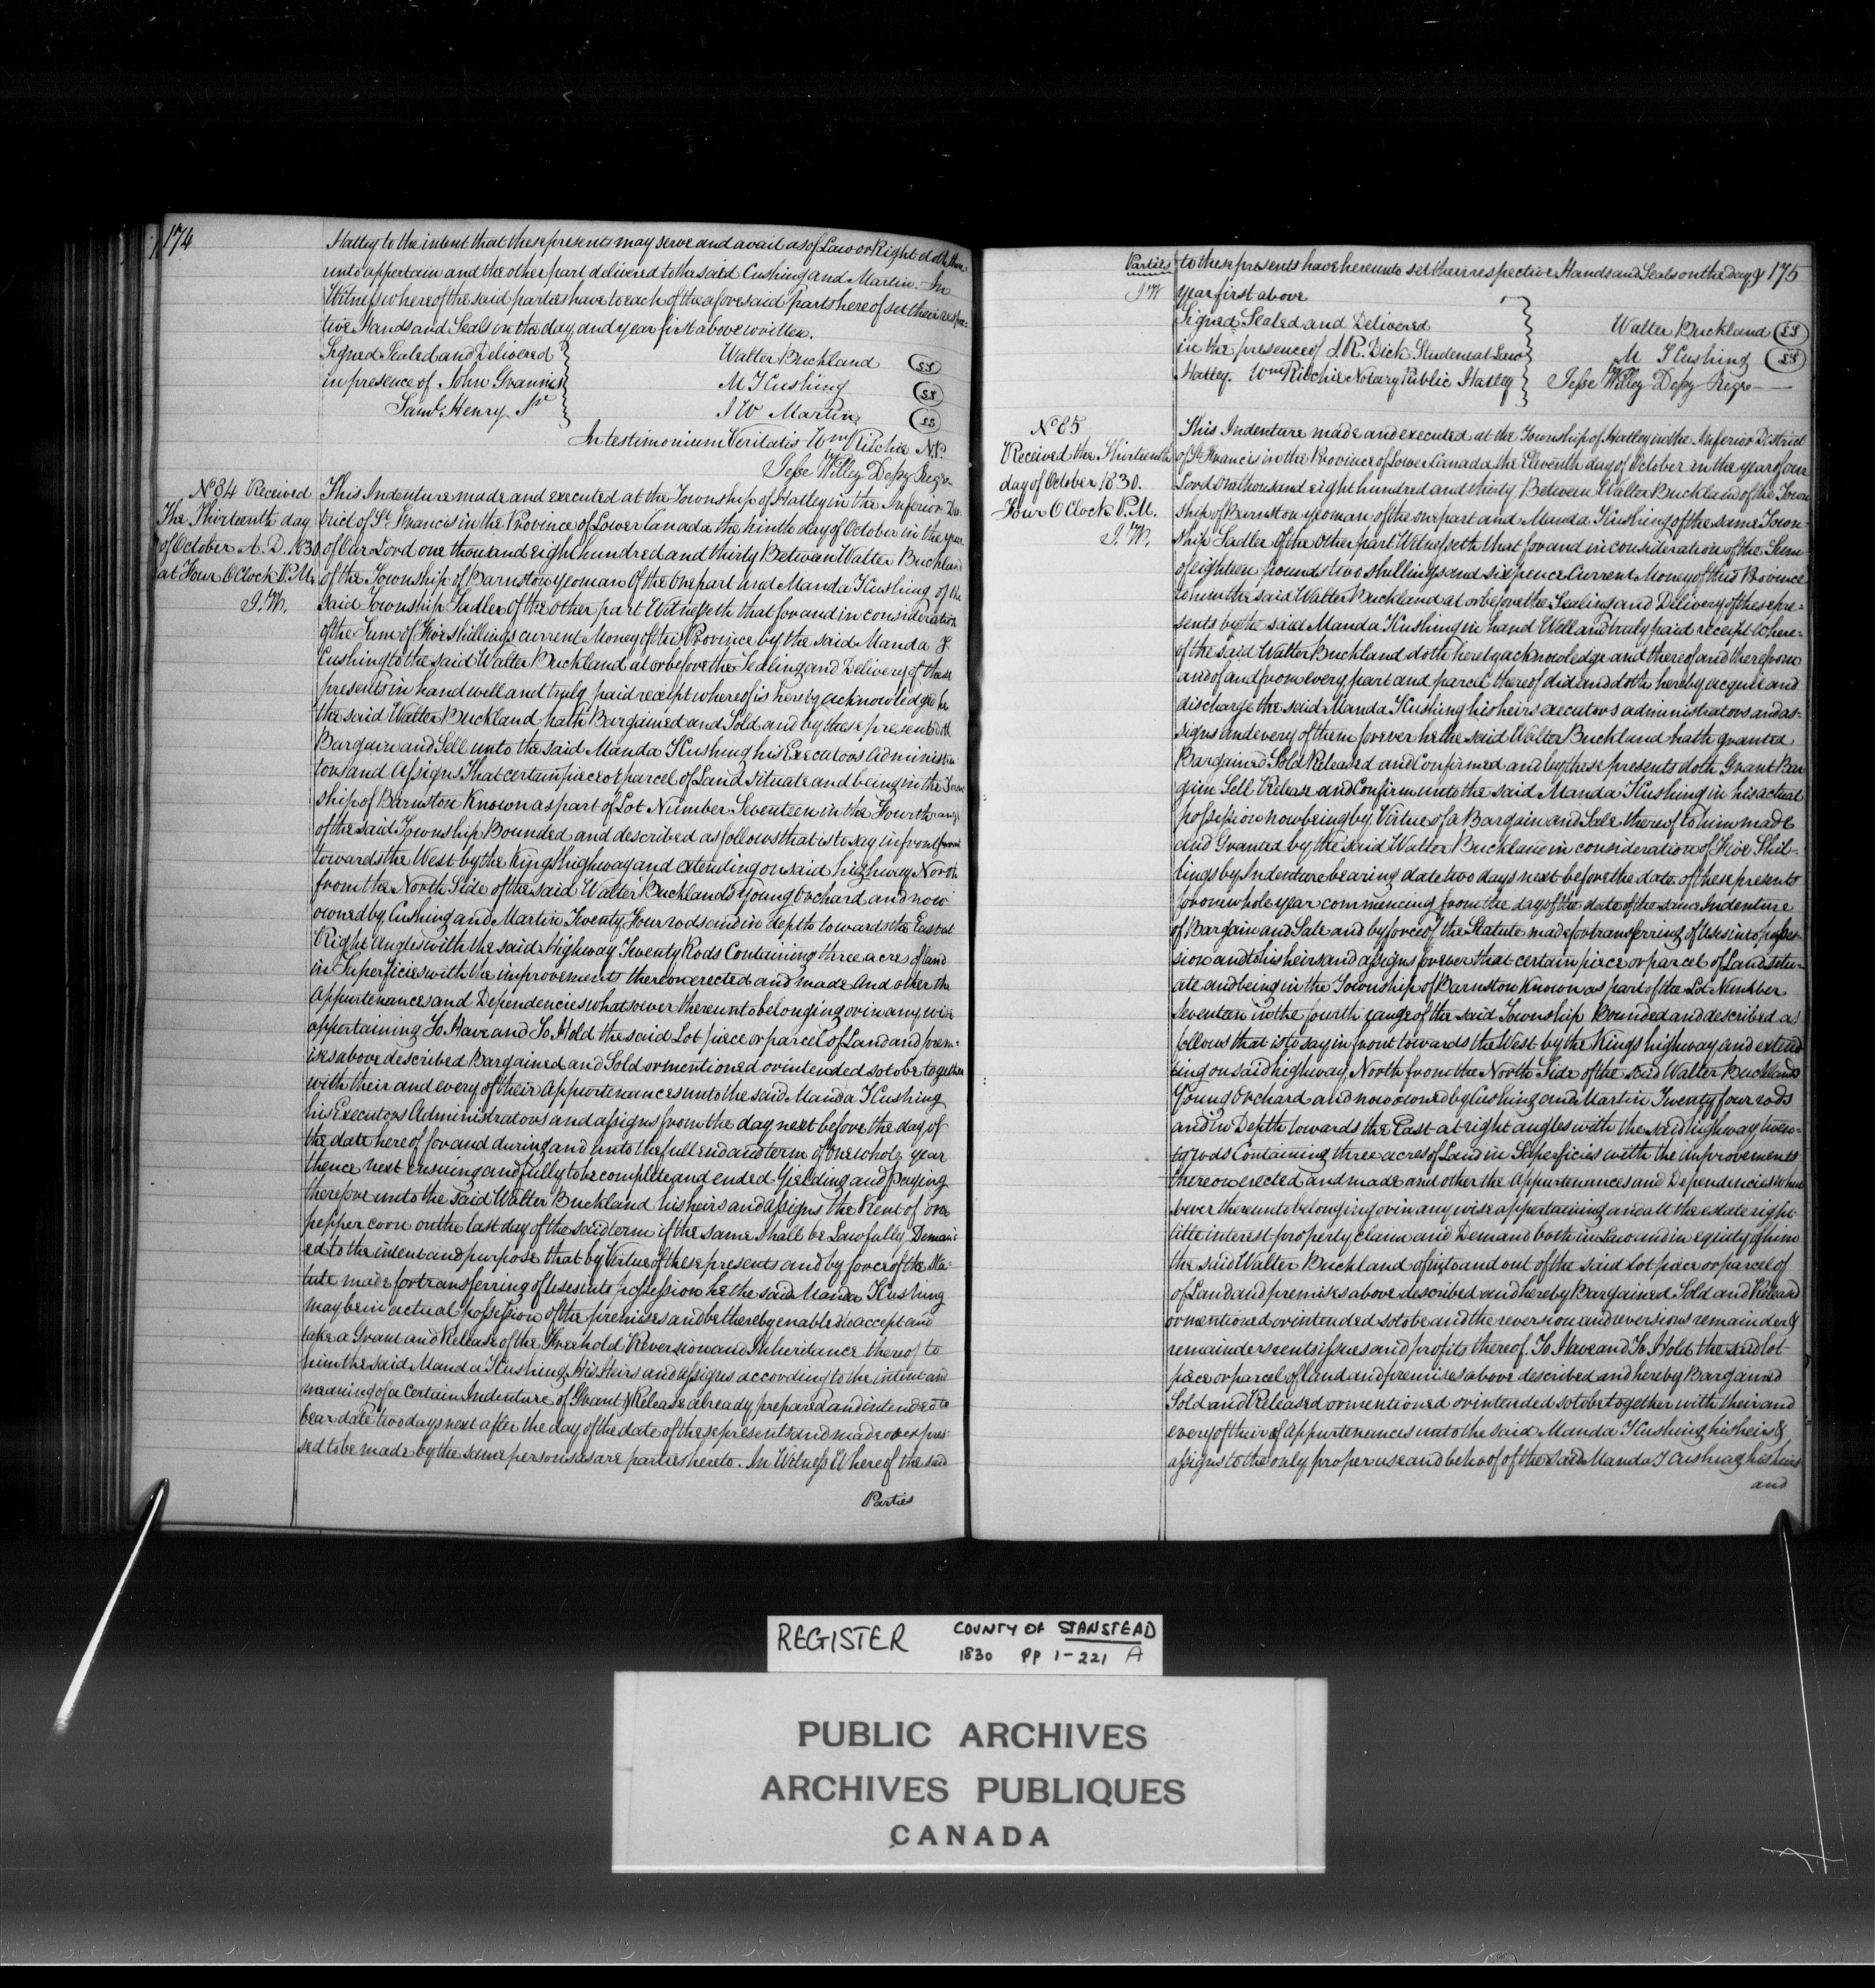 174
Hatley to the intent that these presents may serve and avail as of Law or Right doth there=
unto appertain and the other part delivered to the said Cushing and Martin. In
Witness whereof the said parties have to each of the aforesaid parts hereof set their respec=
tive Hands and Seals on the day and year first above written.
Signed Sealed and Delivered
in presence of John Grannis
Saml. Henry Jr
Walter Buckland SS
M F Cushing SS
I W Martin SS
In testimonium Veritatis Wm Ritchie N.P.
Jesse Willey Depy Regr.
No 84 Received
The Thirteenth day
of October A. D. 1830
at Four O Clock P.M.
J. W.
This Indenture made and executed at the Township of Hatley in the Inferior Dis=
trict of St. Francis in the Province of Lower Canada the ninth day of October in the year
of Our Lord one thousand eight hundred and thirty Between Walter Buckland
of the Township of Barnston yeoman Of the One part and Manda F Cushing of the
said Township Sadler Of the other part Witnesseth that for and in consideration
of the Sum of Five shillings current Money of this Province by the said Manda F.
Cushing to the said Walter Buckland at or before the Sealing and Delivery of these
presents in hand well and truly paid receipt whereof is hereby acknowledged he
the said Walter Buckland hath Bargained and Sold and by these presents doth
Bargain and Sell unto the said Manda F Cushing his Executors Administra
tors and Assigns That certain piece or parcel of Land situate and being in the Town
ship of Barnston Known as part of Lot Number Seventeen in the Fourth range
of the said Township Bounded and described as follows that is to say in front
towards the West by the Kings highway and extending on said highway North
from the North Side of the said Walter Bucklands Young Orchard and now
owned by Cushing and Martin Twenty Four rods and in depth towards the East at
Right Angles with the said Highway Twenty Rods Containing three acres of land
in Superficies with the improvements thereon erected and made And other the
Appurtenances and Dependencies whatsoever thereunto belonging or in any wise
appertaining To Have and To Hold the said Lot piece or parcel of Land and prem=
ises above described Bargained and Sold or mentioned or intended so to be together
with their and every of their Appurtenances unto the said Manda F Cushing
his Executors Administrators and assigns from the day next before the day of
the date hereof for and during and unto the full end and term of One whole year
thence next ensuing and fully to be complete and ended Yielding and paying
therefore unto the said Walter Buckland his heirs and assigns the Rent of one
pepper corn on the last day of the said term if the same shall be Lawfully Demand
ed to the intent and purpose that by Virtue of these presents and by force of the Sta=
tute made for transferring of Uses into possession he the said Manda F Cushing
may be in actual possession of the premises and be thereby enabled to accept and
take a Grant and Release of the Freehold Reversion and Inheritance thereof to
him the said Manda F Cushing His Heirs and assigns according to the intent and
meaning of a Certain Indenture of Grant & Release already prepared and intended to
bear date two days next after the day of the date of these presents and made or expres=
sed to be made by the same persons as are parties hereto. In Witness Whereof the said
Parties
175
Parties
J W
to these presents have hereunto set their respective Hands and Seals on the day &
Year first above
Signed Sealed and Delivered
in the presence of J. R. Dick Student at Law
Hatley. Wm Ritchie Notary Public Hatley
Walter Buckland SS
M F Cushing SS
Jesse Willey Depy Regr
No 85
Received the Thirteenth
day of October 1830.
Four O Clock P.M.
J. W.
This Indenture made and executed at the Township of Hatley in the Inferior District
of St. Francis in the Province of Lower Canada the Eleventh day of October in the year of our
Lord One thousand eight hundred and thirty Between Walter Buckland of the Town
ship of Barnston yeoman of the one part and Manda F Cushing of the same Town=
ship Sadler Of the Other part Witnesseth that for and in consideration of the Sum
of eighteen pounds two shillings and six pence Current Money of this Province
to him the said Walter Buckland at or before the Sealing and Delivery of these pre=
sents by the said Manda F Cushing in hand Well and truly paid receipt where=
of the said Walter Buckland doth hereby acknowledge and thereof and therefrom
and of and from every part and parcel thereof did and doth hereby acquit and
discharge the said Manda F Cushing his heirs executors administrators and as=
signs and every of them forever he the said Walter Buckland hath granted
Bargained Sold Released and Confirmed and by these presents doth Grant Bar
gain Sell Release and Confirm unto the said Manda F Cushing in his actual
possession now being by Virtue of a Bargain and Sale thereof to him made
and Granted by the said Walter Buckland in consideration of Five Shil=
lings by Indenture bearing date two days next before the date of these presents
for one whole year commencing from the day of the date of the same Indenture
of Bargain and Sale and by force of the Statute made for transferring of Uses into posses=
sion and to his heirs and assigns forever that certain piece or parcel of Land situ=
ate and being in the Township of Barnston Known as part of the Lot Number
Seventeen in the fourth range of the said Township Bounded and described as
follows that is to say in front towards the West by the Kings highway and extend
ing on said highway North from the North Side of the said Walter Bucklands
Young Orchard and now owned by Cushing and Martin Twenty four rods
and in Depth towards the East at right angles with the said highway twen=
ty rods Containing three acres of Land in Superficies with the improvements
thereon erected and made and other the Appurtenances and Dependencies what
soever thereunto belonging or in any wise appertaining and all the estate right
title interest property claim and Demand both in Law and in equity of him
the said Walter Buckland of into and out of the said lot piece or parcel of
of Land and premises above described and hereby Bargained Sold and Released
or mentioned or intended so to be and the reversion and reversions remainder &
remainders rents issues and profits thereof. To Have and To Hold the said lot
piece or parcel of land and premises above described and hereby Bargained
Sold and Released or mentioned or intended so to be together with their and
every of their appurtenances unto the said Manda F Cushing his heirs &
assigns to the only proper use and behoof of the said Manda F Cushing his heirs
and
REGISTER
COUNTY OF STANSTEAD
1830 PP 1-221 A
PUBLIC ARCHIVES
ARCHIVES PUBLIQUES
CANADA